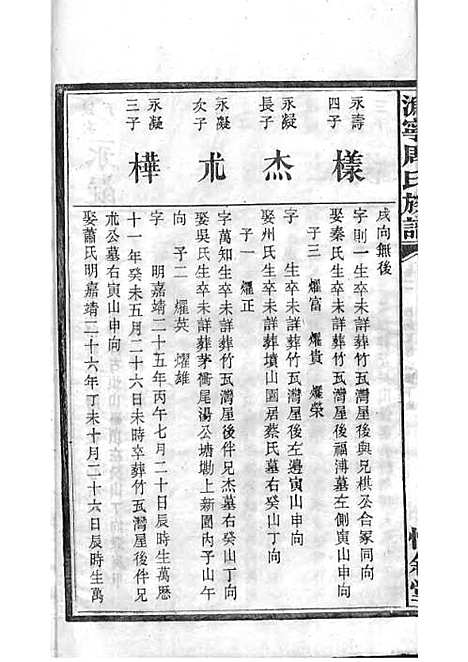 周氏族譜
永壽
四子
樣
永凝
長子
杰
永凝
次子
朮
永凝
三子
樺
戌向無後
字則一生卒未詳葬竹瓦灣屋後與兄棋公合冢同向
娶秦氏生卒未詳葬竹瓦灣屋後福溥墓左側寅山申向
子三 燿富 燿貴 燿榮
字 生卒未詳葬竹瓦灣屋後左邊寅山申向
娶州氏生卒未詳葬墳山園居蔡氏墓右癸山丁向
子一 燿正
字萬知生卒未詳葬竹瓦灣屋後伴兄杰墓右癸山丁向
娶吳氏生卒未詳葬茅衝尾湯公塘墈上新園內子山午
向 子二 燿英 燿維
字 明嘉靖二十五年丙午七月二十日辰時生萬歷
十一年癸未五月二十六日未時卒葬竹瓦灣屋後伴兄
朮公墓右寅山申向
娶蕭氏明嘉靖二十六年丁未十月二十六日辰時生萬